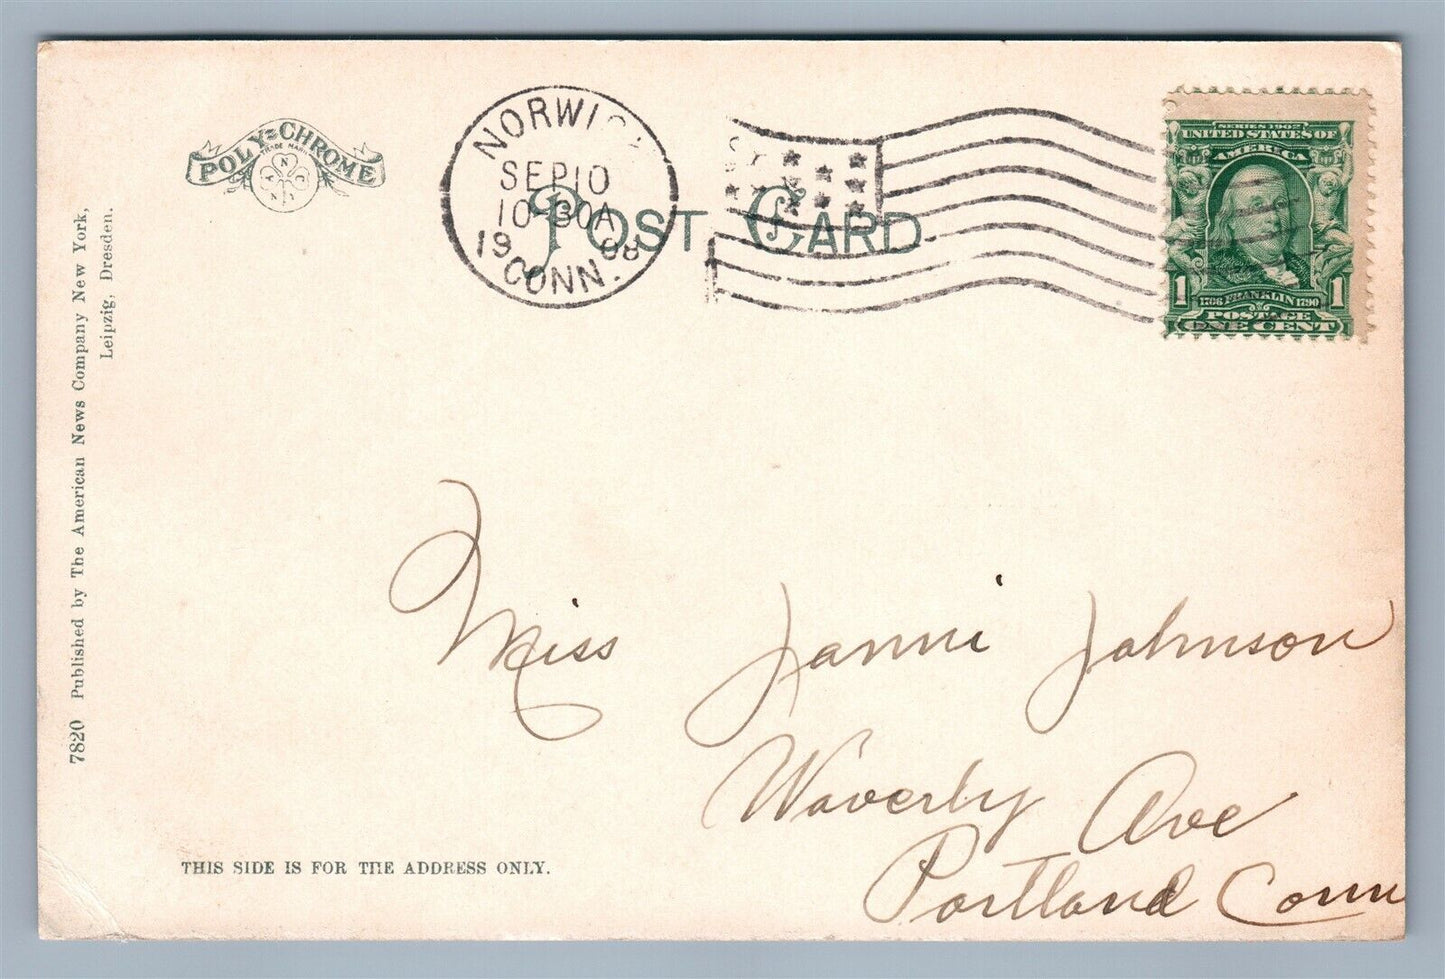 POLY=CHROME
TRADE MARK
A N C N Y
NORWICH
SEP 10
10-30A
1908
CONN.
POST CARD
SERIES 1902
UNITED STATES OF
AMERICA
1 1706 FRANKLIN 1790 1
POSTAGE
ONE CENT
7820 Published by The American News Company New York,
Leipzig, Dresden.
Miss Janni Johnson
Waverly Ave
Portland Conn
THIS SIDE IS FOR THE ADDRESS ONLY.